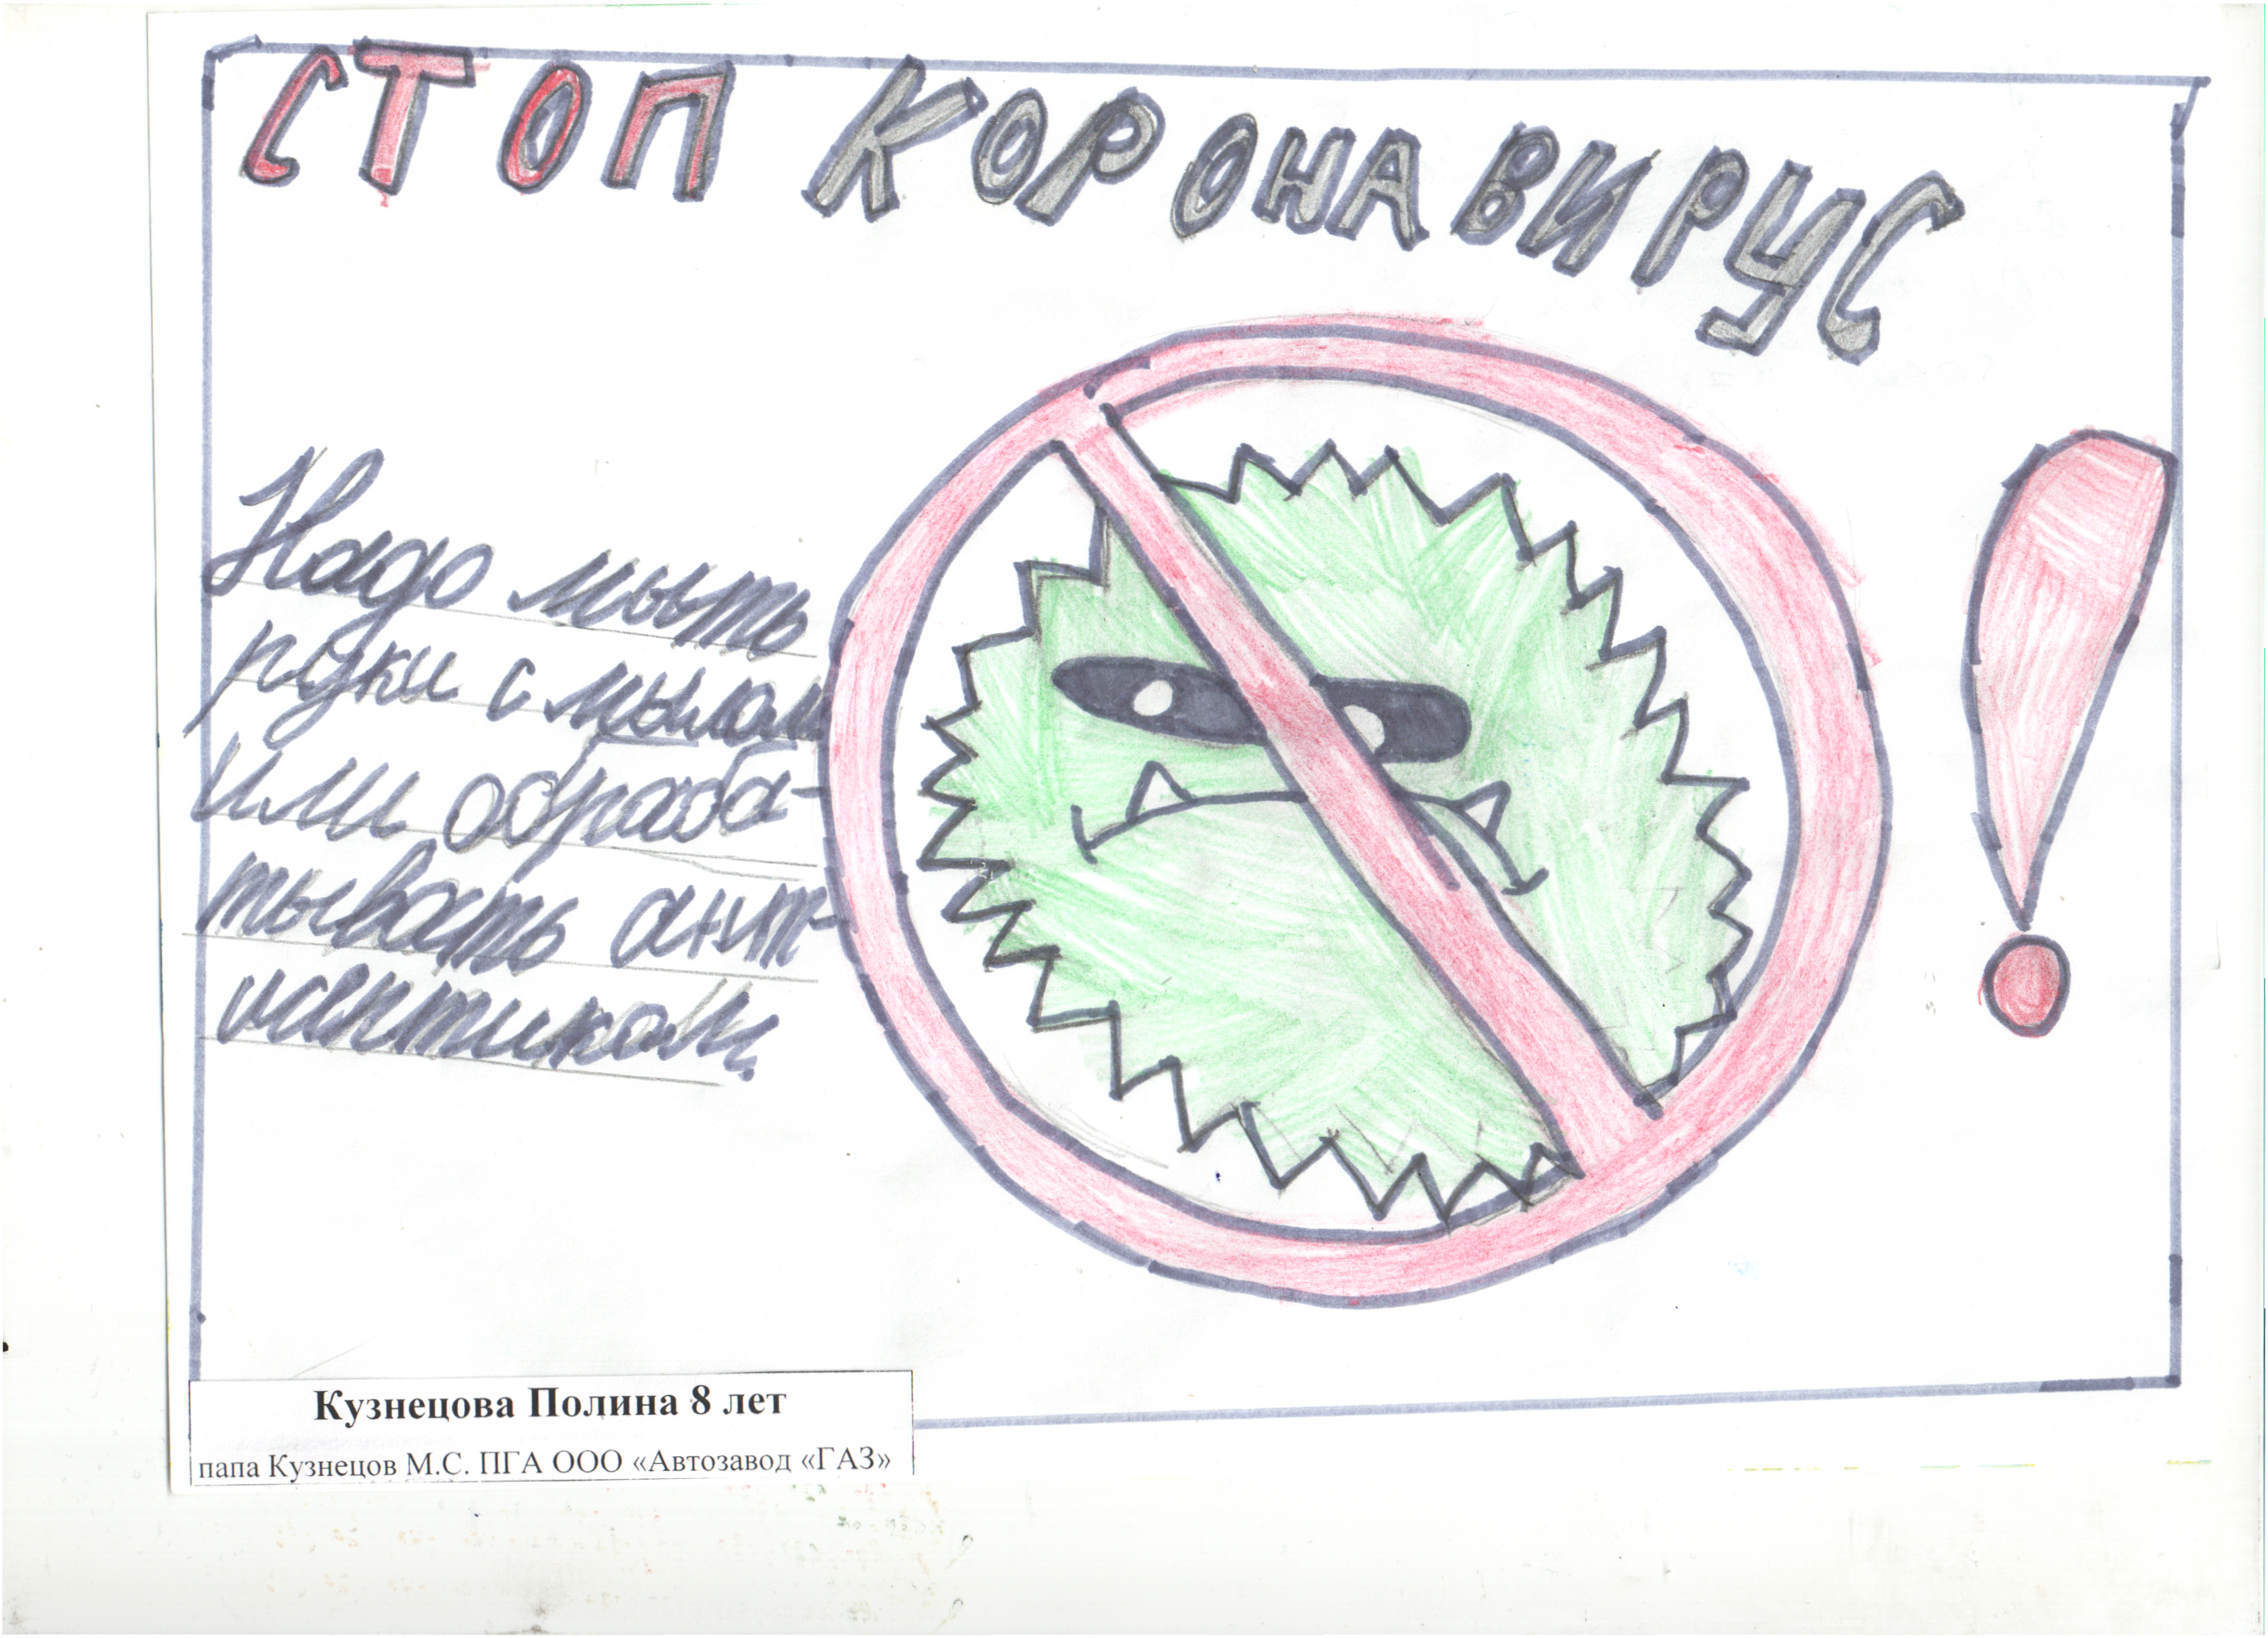 СТОП КОРОНАВИРУС
Надо мыть
руки с мылом
или обраба-
тывать ант-
исептиком.
!
Кузнецова Полина 8 лет
папа Кузнецов М.С. ПГА ООО «Автозавод «ГАЗ»